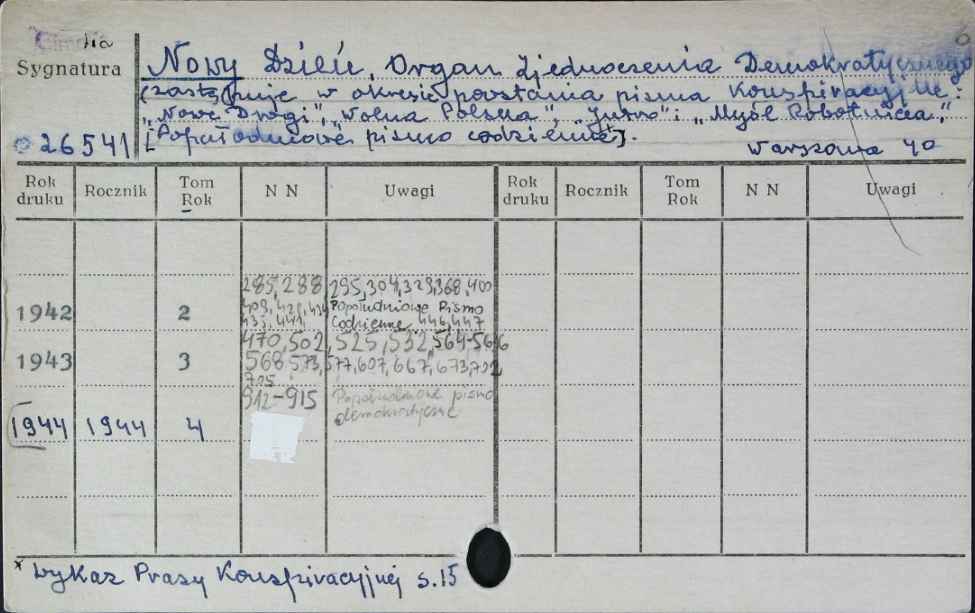 Sygnatura
Nowy Dzień, Organ Zjednoczenia Demokratycznego
(zastępuje w okresie powstania pisma konspiracyjne:
"Nowe Drogi", "Wolna Polska", "Jutro" i "Myśl Robotnicza",
26541 [Popołudniowe pismo codzienne].
Warszawa 40
Rok druku Rocznik Tom Rok NN Uwagi Rok druku Rocznik Tom Rok NN Uwagi
285, 288, 295, 304, 323, 368, 400
1942 2 Popołudniowe Pismo
Codzienne 446, 447
470, 502, 525, 532, 564-566
1943 3 568, 573, 577, 607, 667, 673, 702
705
912-915 Popołudniowe pismo
demokratyczne
1944 1944 4
* Wykaz Prasy Konspiracyjnej s. 15